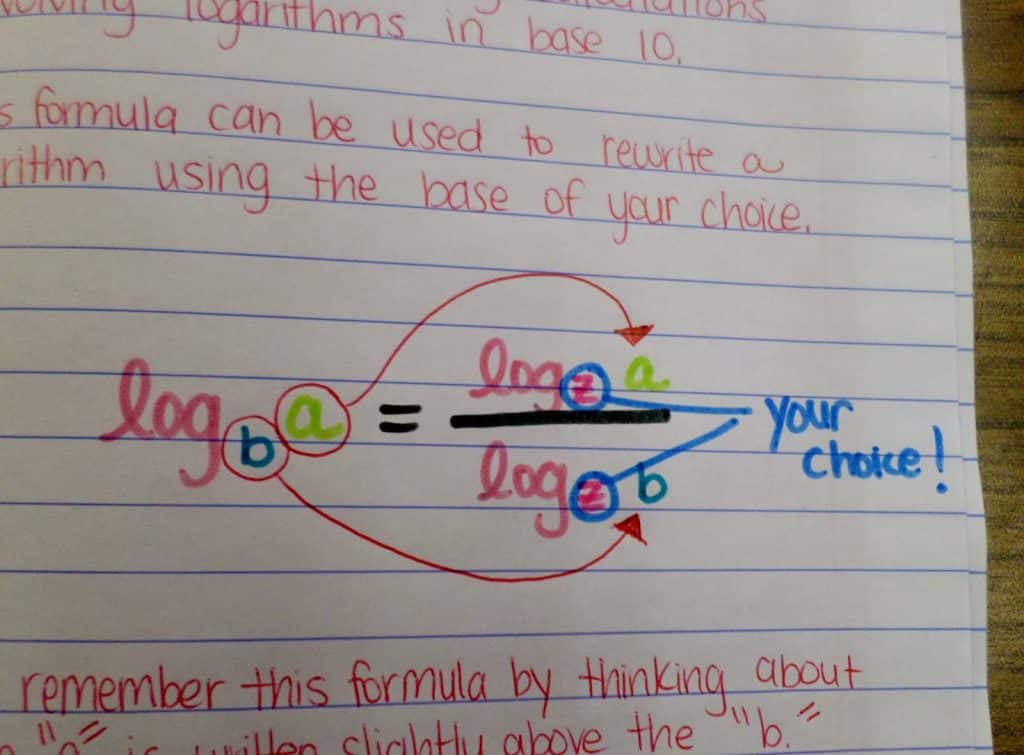 logarithms in base 10.
formula can be used to rewrite a
using the base of your choice.
log_b a = log_z a / log_z b your choice!
remember this formula by thinking about
"a" is written slightly above the "b."